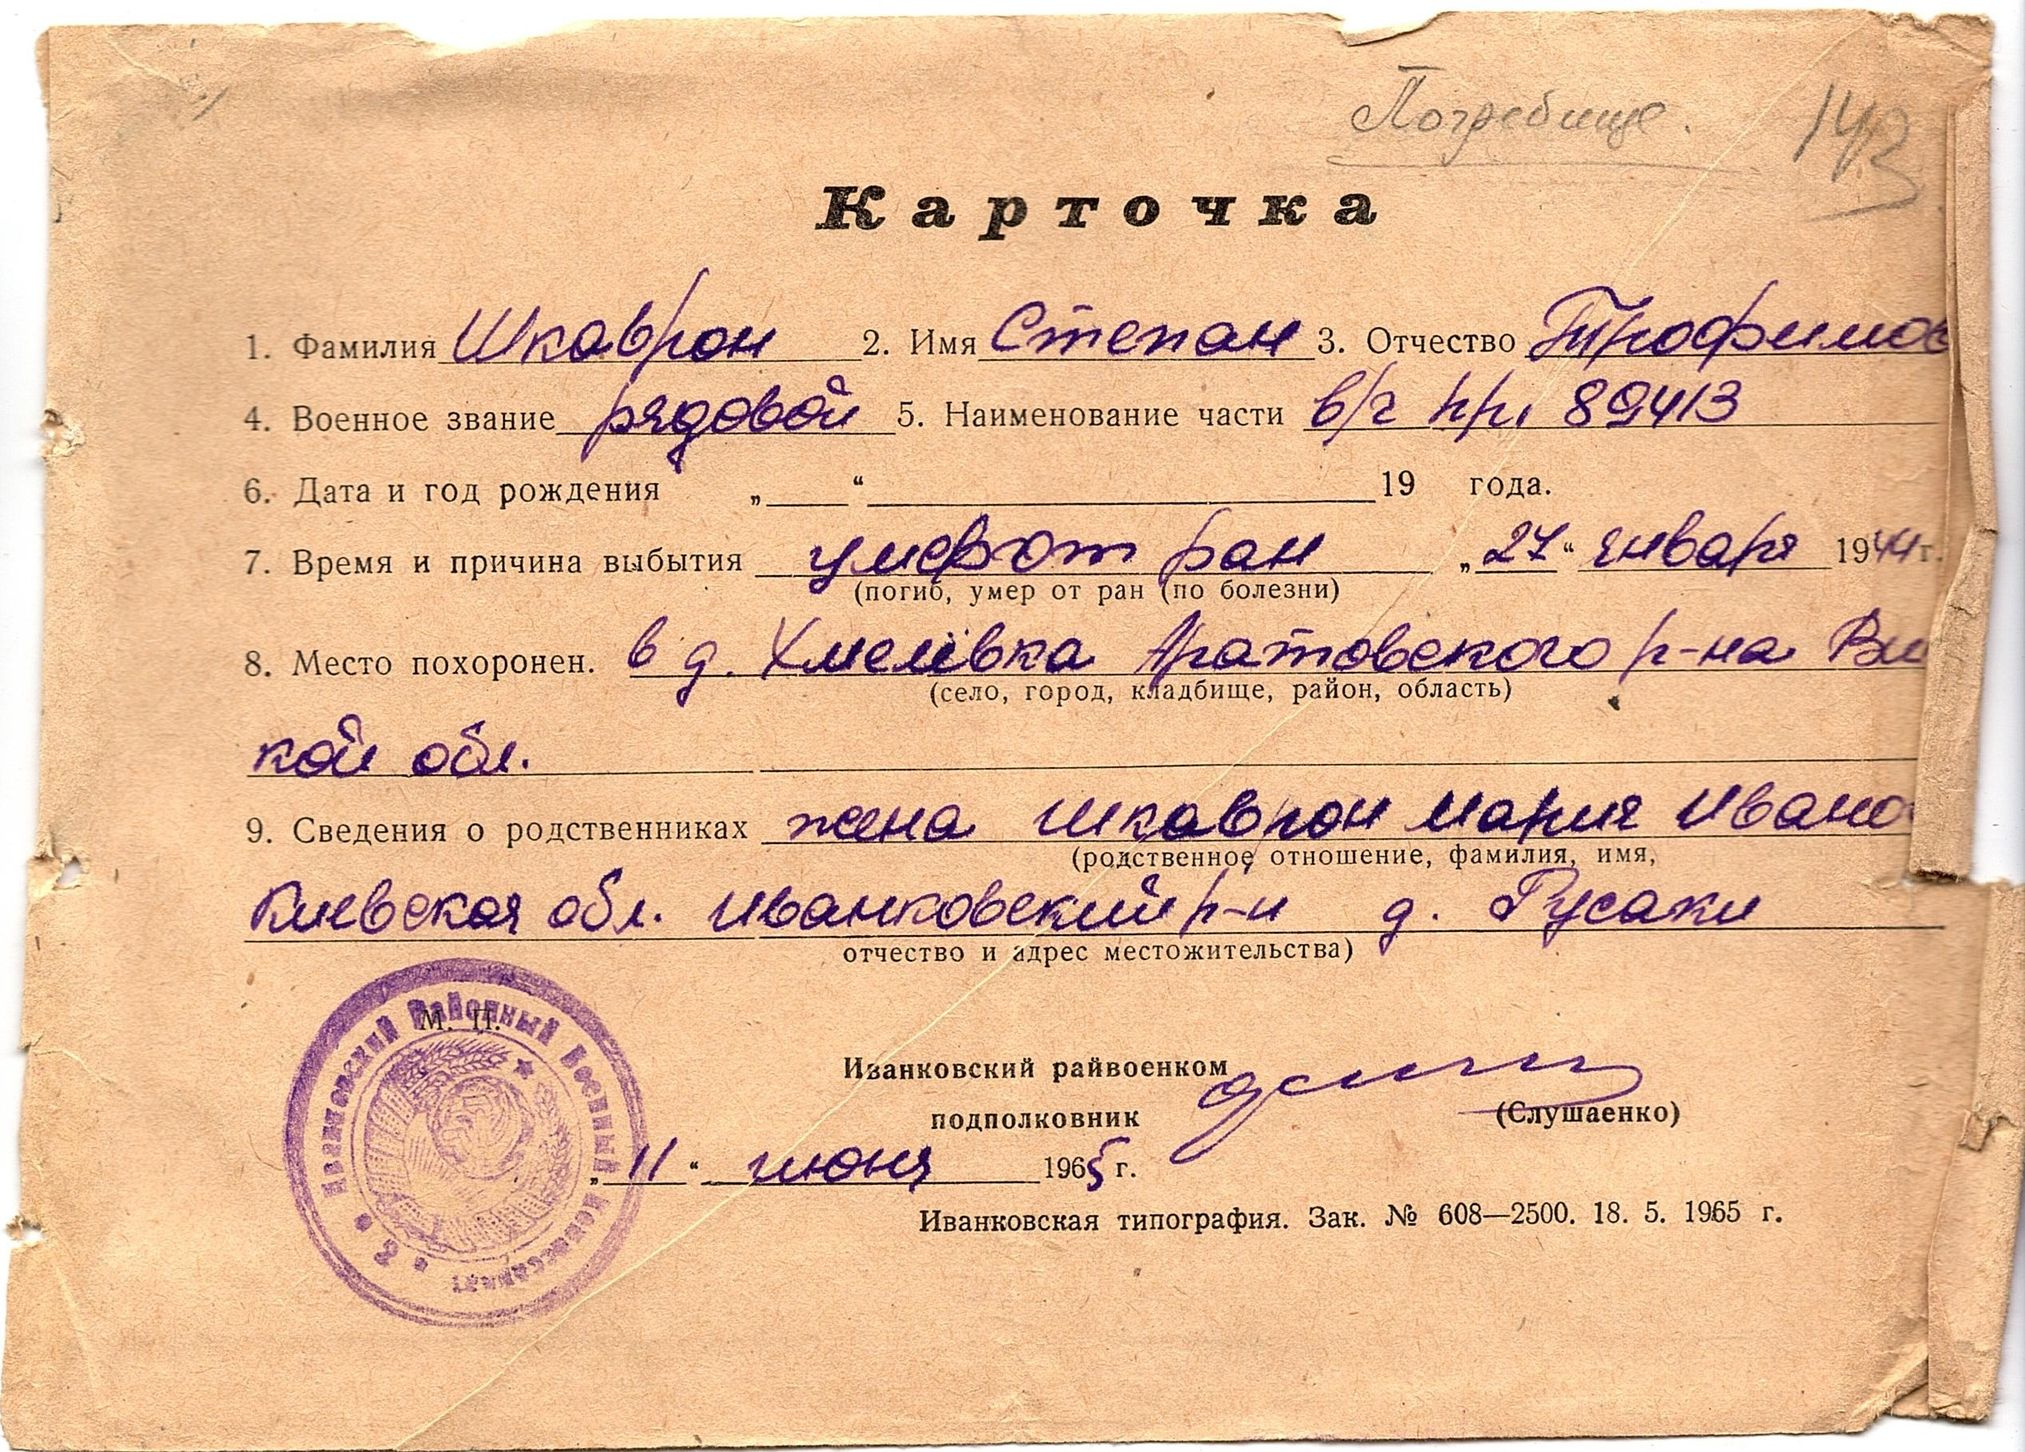 Погребище. 143
Карточка
1. Фамилия Шкаврон 2. Имя Степан 3. Отчество Трофимов
4. Военное звание рядовой 5. Наименование части в/ч пп, 89413
6. Дата и год рождения „ “ 19 года.
7. Время и причина выбытия умер от ран „27“ января 1944 г.
(погиб, умер от ран (по болезни)
8. Место похоронен. в д. Хмелівка Аратовского р-на Ви
(село, город, кладбище, район, область)
кой обл.
9. Сведения о родственниках жена Шкаврон Мария Ивано
(родственное отношение, фамилия, имя,
Киевская обл. Иванковский р-н д. Русаки
отчество и адрес местожительства)
М. П.
Иванковский Районный Военный Комиссариат
Иванковский райвоенком
подполковник (Слушаенко)
„11“ июня 1965 г.
Иванковская типография. Зак. № 608—2500. 18. 5. 1965 г.